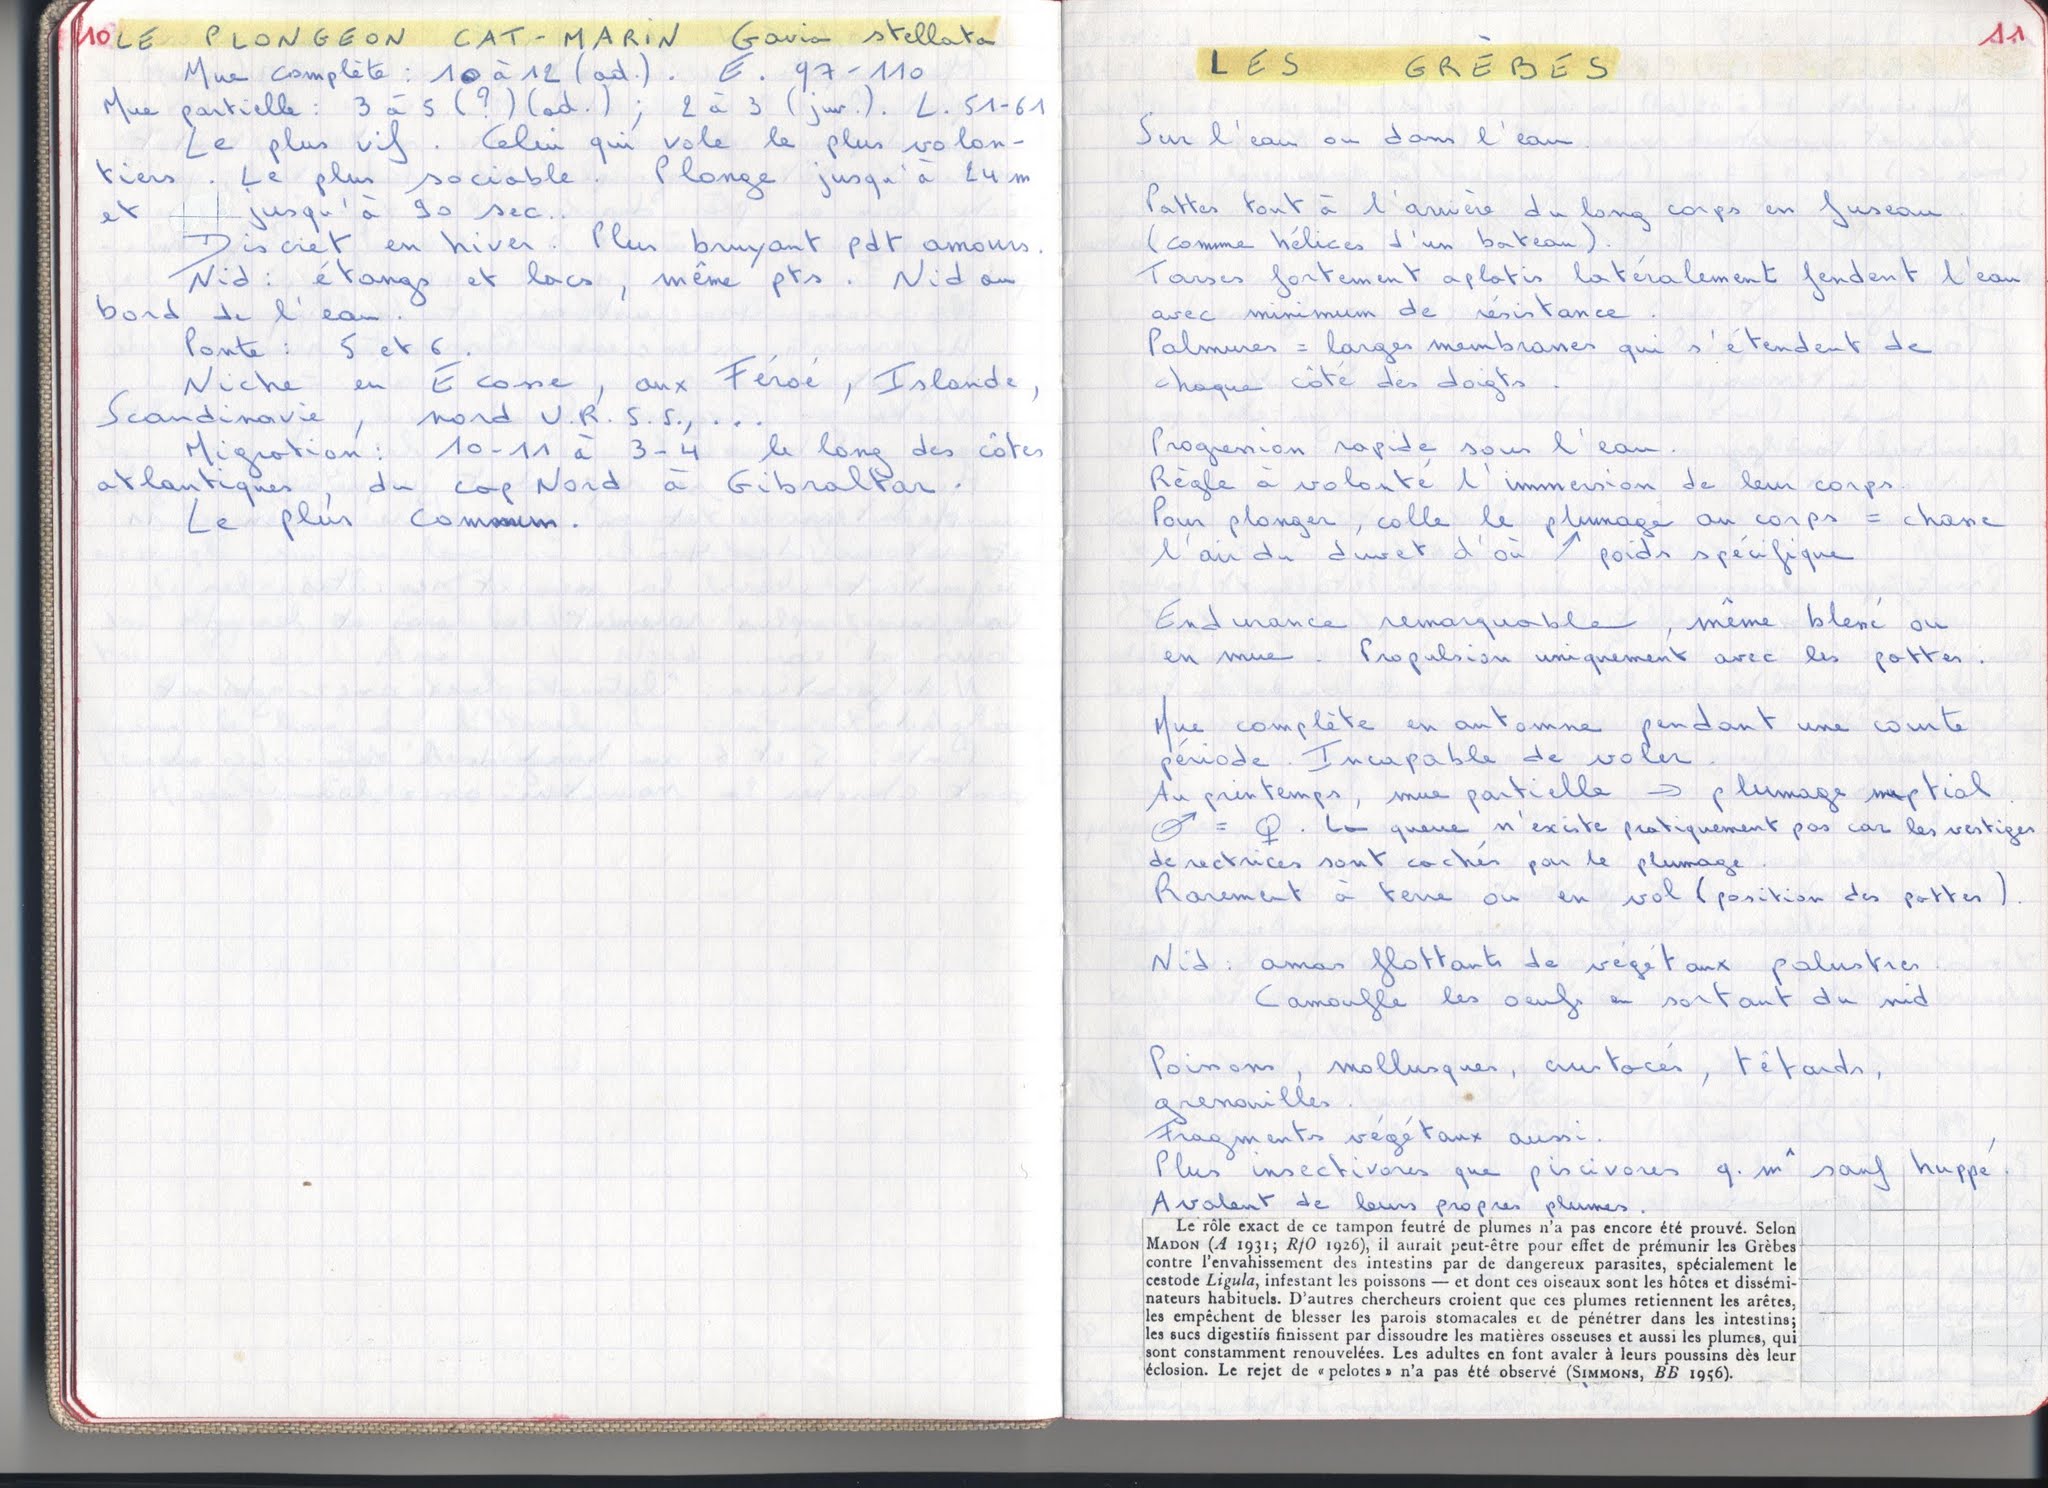 10 LE PLONGEON CAT-MARIN Gavia stellata
Mue complète : 10 à 12 (ad.). E. 97-110
Mue partielle : 3 à 5 (?) (ad.) ; 2 à 3 (juv.). L. 51-61
Le plus vif. Celui qui vole le plus volon-
tiers. Le plus sociable. Plonge jusqu'à 24 m
et jusqu'à 90 sec..
Discret en hiver. Plus bruyant pdt amours.
Nid : étangs et lacs, même pts. Nid au
bord de l'eau.
Ponte : 5 et 6.
Niche en Ecosse, aux Féroé, Islande,
Scandinavie, nord U.R.S.S., ...
Migration : 10-11 à 3-4 le long des côtes
atlantiques, du cap Nord à Gibraltar.
Le plus commun.
11
LES GRÈBES
Sur l'eau ou dans l'eau.
Pattes tout à l'arrière du long corps en fuseau
(comme hélices d'un bateau).
Tarses fortement aplatis latéralement fendent l'eau
avec minimum de résistance.
Palmures = larges membranes qui s'étendent de
chaque côté des doigts.
Progression rapide sous l'eau.
Règle à volonté l'immersion de leur corps.
Pour plonger, colle le plumage au corps = chasse
l'air du duvet d'où ↗ poids spécifique
Endurance remarquable, même blessé ou
en mue. Propulsion uniquement avec les pattes.
Mue complète en automne pendant une courte
période. Incapable de voler.
Au printemps, mue partielle → plumage nuptial.
♂ = ♀. La queue n'existe pratiquement pas car les vestiges
de rectrices sont cachés par le plumage.
Rarement à terre ou en vol (position des pattes).
Nid : amas flottants de végétaux palustres.
Camoufle les oeufs en sortant du nid
Poissons, mollusques, crustacés, têtards,
grenouilles.
Fragments végétaux aussi.
Plus insectivores que piscivores q. m^ sauf huppé.
Avalent de leurs propres plumes.
Le rôle exact de ce tampon feutré de plumes n'a pas encore été prouvé. Selon
MADON (A 1931; R/O 1926), il aurait peut-être pour effet de prémunir les Grèbes
contre l'envahissement des intestins par de dangereux parasites, spécialement le
cestode Ligula, infestant les poissons — et dont ces oiseaux sont les hôtes et dissémi-
nateurs habituels. D'autres chercheurs croient que ces plumes retiennent les arêtes,
les empêchent de blesser les parois stomacales et de pénétrer dans les intestins;
les sucs digestifs finissent par dissoudre les matières osseuses et aussi les plumes, qui
sont constamment renouvelées. Les adultes en font avaler à leurs poussins dès leur
éclosion. Le rejet de « pelotes » n'a pas été observé (SIMMONS, BB 1956).